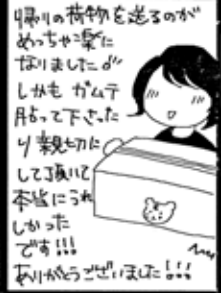 帰りの荷物を送るのが
めっちゃ楽に
なりました♂〃
しかも ガムテ
貼って下さった
り 親切に
して頂いて
本当にうれ
しかった
です!!!
ありがとうございました!!!